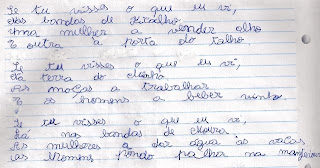 Se tu visses o que eu vi,
bandas de
Uma mulher a vender
E outra à porta do talho
Se tu visses o que eu vi,
Na terra do
As moças a trabalhar
E os homens a beber vinho
Se tu visses o que eu vi,
Lá nas bandas de
As mulheres a dar água às vacas
Os Homens pondo palha na